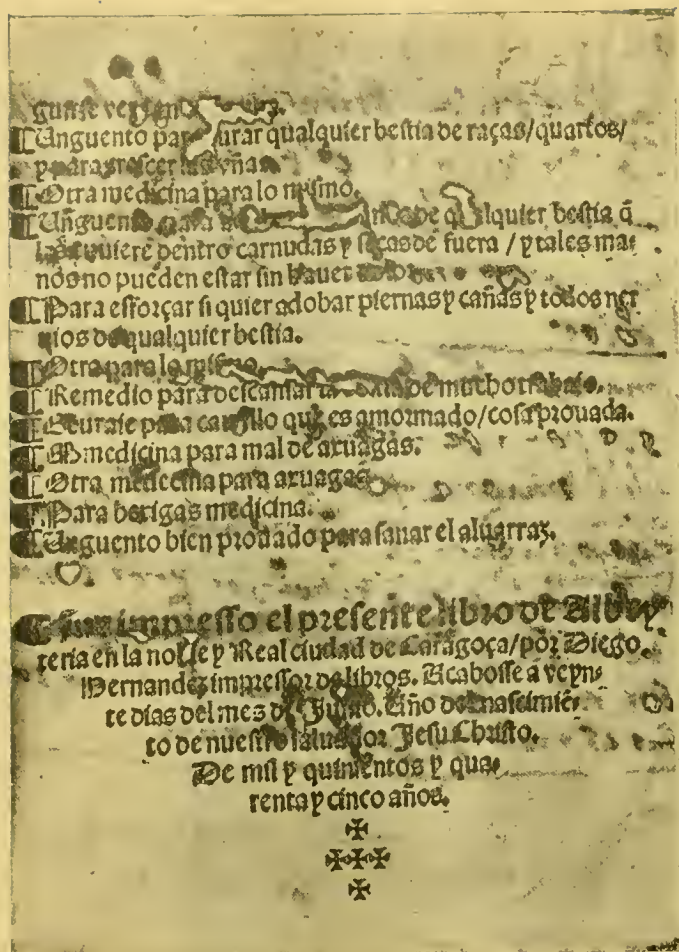 ¶Unguento para curar qualquier bestia de raças/quartos/
y para crescer las vñas.
¶Otra medicina para lo mismo.
¶Unguento para de qualquier bestia q̃
dentro carnudas y secas de fuera / y tales ma-
nos no pueden estar sin hauer
¶Para esforçar si quier adobar piernas y cañas y todos ner
uios de qualquier bestia.
¶Otra para lo mismo.
¶Remedio para descansar de mucho trabajo.
para cauallo que es amormado/cosa prouada.
¶Medicina para mal de axuagas.
¶Otra medecina para axuagas.
¶Para bexigas medicina.
¶Unguento bien prouado para sanar el aluarraz.
¶Fue impresso el presente libro de Albey
teria en la noble y Real ciudad de Caragoça/por Diego
Hernandez impressor de libros. Acabosse a veyn-
te dias del mes de Año del nascimiē-
to de nuestro saluador Jesu Christo.
De mil y quinientos y qua-
renta y cinco años.